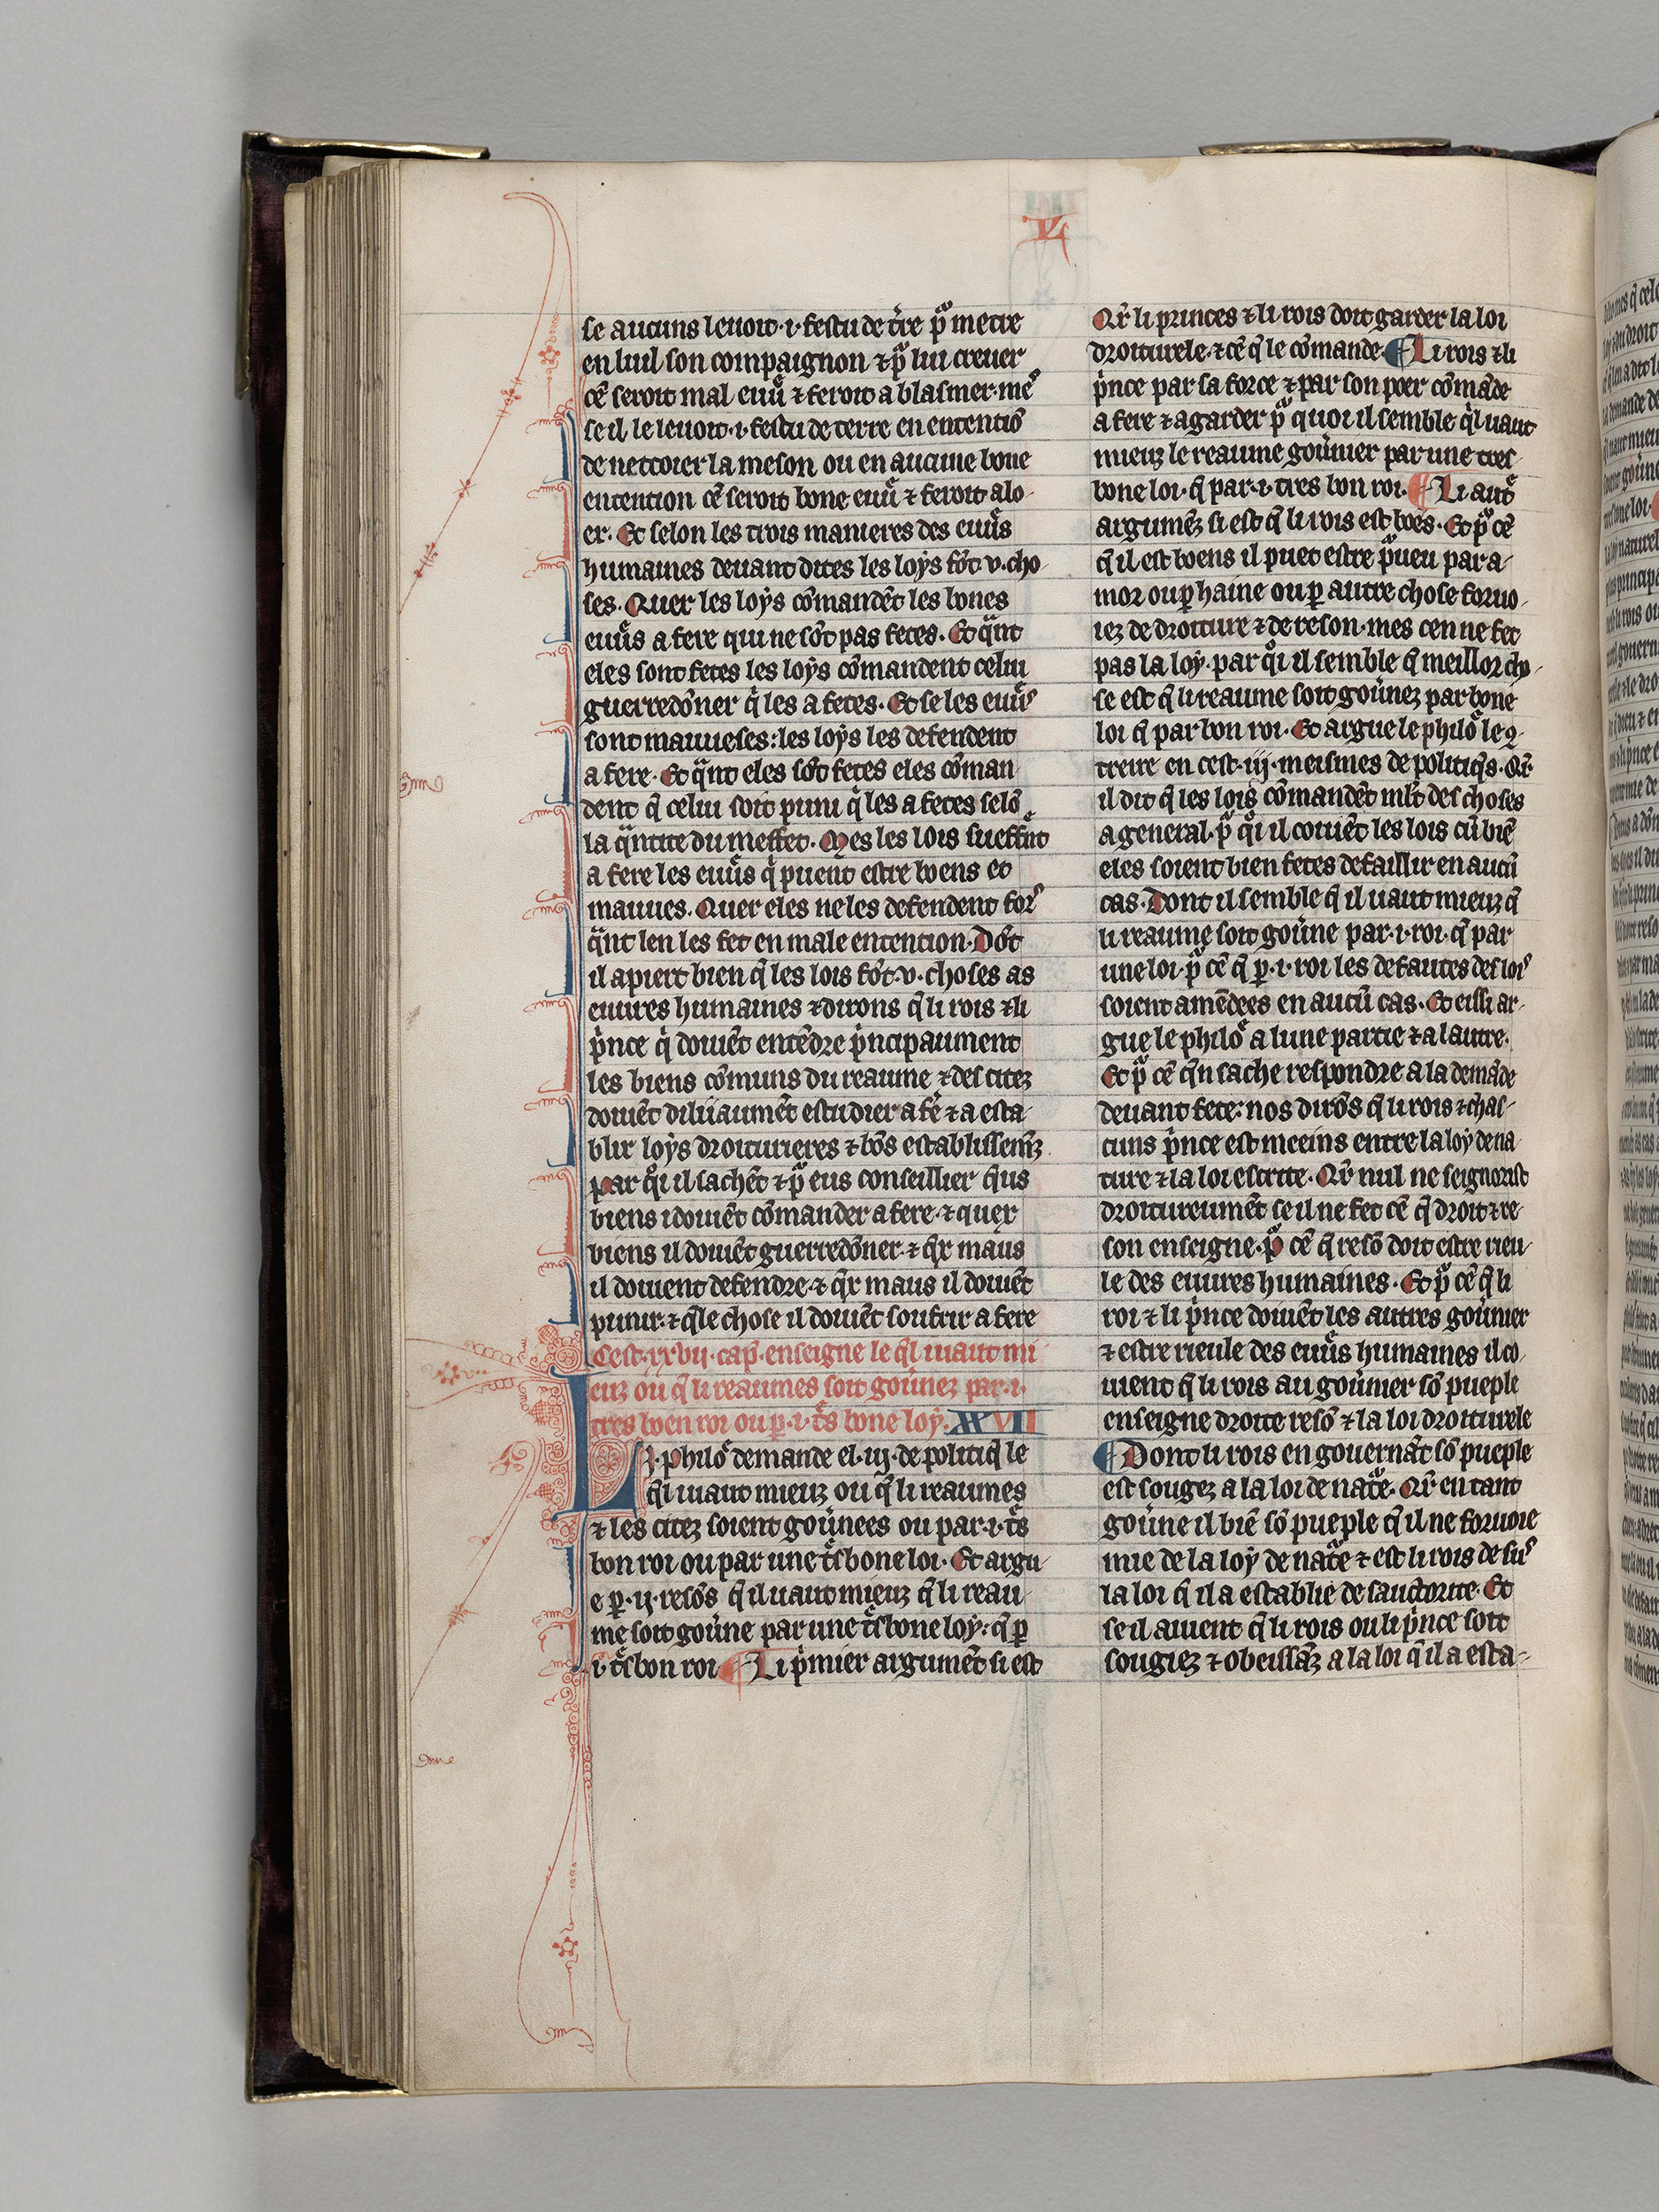 V
se aucuns levoit ·i· festu de t̾re pͦ metre
en luil son compaignon ⁊ pͦ lui crever
cē seroit mal euu̾ ⁊ feroit a blasmer· mes
se il le levoit ·i· festu de terre en ententiō
de nettoier la meson ou en aucune bone
entention cē seroit bone euu̾ ⁊ feroit alo-
er· Et selon les trois manieres des euu̾s
humaines devant dites les loys fōt ·v· cho-
ses· Quer les loys cōmandēt les bones
euu̾s a fere qui ne sōt pas fetes· Et qᵃnt
eles sont fetes les loys cōmandent celui
guerredōner qͥ les a fetes· Et se les euu̾s
sont mauveses: les loys les defendent
a fere· Et qᵃnt eles sōt fetes eles cōman
dent q̄ celui soit puni qͥ les a fetes selō
la qᵃntite du meffet· Mes les lois sueffr̄nt
a fere les euu̾s qͥ puēnt estre boens et
mauves· Quer eles ne les defendent fors
qᵃnt len les fet en male entention· Dōt
il apiert bien q̄ les lois fōt ·v· choses as
euvres humaines ⁊ dirons q̄ li rois ⁊ li
pͥnce qͥ doivēt entēdre pͥncipaument
les biens cōmuns du reaume ⁊ des citez
doivēt diliiaumēt estudier a fē ⁊ a esta-
blir loys droiturieres ⁊ bōs establissem̄z
par qͦi il sachēt ⁊ pͦ eus conseillier qͥus
biens i doivēt cōmander a fere· ⁊ quex
biens il doivēt guerredōner· ⁊ q̄x maus
il doivent defendre· ⁊ q̄x maus il doivēt
punir· ⁊ q̄le chose il doivēt soufrir a fere
Cest ·xxvii· cap̄· enseigne le q̄l vaut mi-
euz ou q̄ li reaumes soit gou̾nez par ·i·
tres boen roi ou ꝑ ·i· t̾s bone loy· XXVII
Li philoͦ demande el ·iij· de politiq̄ le
q̄l vaut mieuz ou q̄ li reaumes
⁊ les citez soient gou̾nees ou par ·i· t̾s
bon roi ou par une t̾s bone loi· Et argu-
e ꝑ ·ij· resōs q̄ il vaut mieuz q̄ li reau-
me soit gou̾ne par une t̾s bone loy: q̄ ꝑ
·i· t̾s bon roi ¶ Li pͥmier argumēt si est
Qr̄ li princes ⁊ li rois doit garder la loi
droiturele· ⁊ cē q̄ le cōmande· ¶ Li rois ⁊ li
pͥnce par sa force ⁊ par son poer cōmāde
a fere ⁊ a garder pͦ quoi il semble qͥl vaut
mieuz le reaume gou̾ner par une tres
bone loi· q̄ par ·i· tres bon roi· ¶ Li autͤ
argumēz si est q̄ li rois est boēs· Et pͦ cē
q̄ il est boens il puet estre pͦveu par a-
mor ou ꝑ haine ou ꝑ autre chose forvo-
iez de droiture ⁊ de reson· mes cen ne fet
pas la loy· par qͦi il semble q̄ meillor cho-
se est q̄ li reaume soit gou̾nez par bone
loi q̄ par bon roi· Et argue le philoͦ le ꝯ-
treire en cest ·iij· meismes de politiq̄s· Qr̄
il dit q̄ les lois cōmandēt ml̄t des choses
a general· pͦ qͦi il covēt les lois cū biē
eles soient bien fetes defaillir en aucū
cas· Dont il semble q̄ il vaut mieuz q̄
li reaume soit gou̾ne par ·i· roi· q̄ par
une loi· pͦ cē q̄ ꝑ ·i· roi les defautes des lois
soient amēdees en aucū cas· Et eissi ar-
gue le philoͦ a lune partie ⁊ a lautre·
Et pͦ cē q̄n sache respondre a la demāde
devant fete: nos dirōs q̄ li rois ⁊ chas-
cuns pͥnce est meeins entre la loy de na
ture ⁊ la loi escrite· Qr̄ nul ne seignorist
droitureumēt se il ne fet cē q̄ droit ⁊ re-
son enseigne· pͦ cē q̄ resō doit estre rieu-
le des euvres humaines· Et pͦ cē q̄ li
roi ⁊ li pͥnce doivēt les autres gou̾ner
⁊ estre rieule des euu̾s humaines il co-
vient q̄ li rois au gou̾ner sō pueple
enseigne droite resō ⁊ la loi droiturele
¶ Dont li rois en governāt sō pueple
est sougez a la loi de natͤ· Qr̄ en tant
gou̾ne il biē sō pueple q̄ il ne forvoie
mie de la loy de natͤ ⁊ est li rois de sus
la loi q̄ il a establie de sauctorite· Et
se il avient q̄ li rois ou li pͥnce soit
sougiez ⁊ obeissāz a la loi q̄ il a esta-